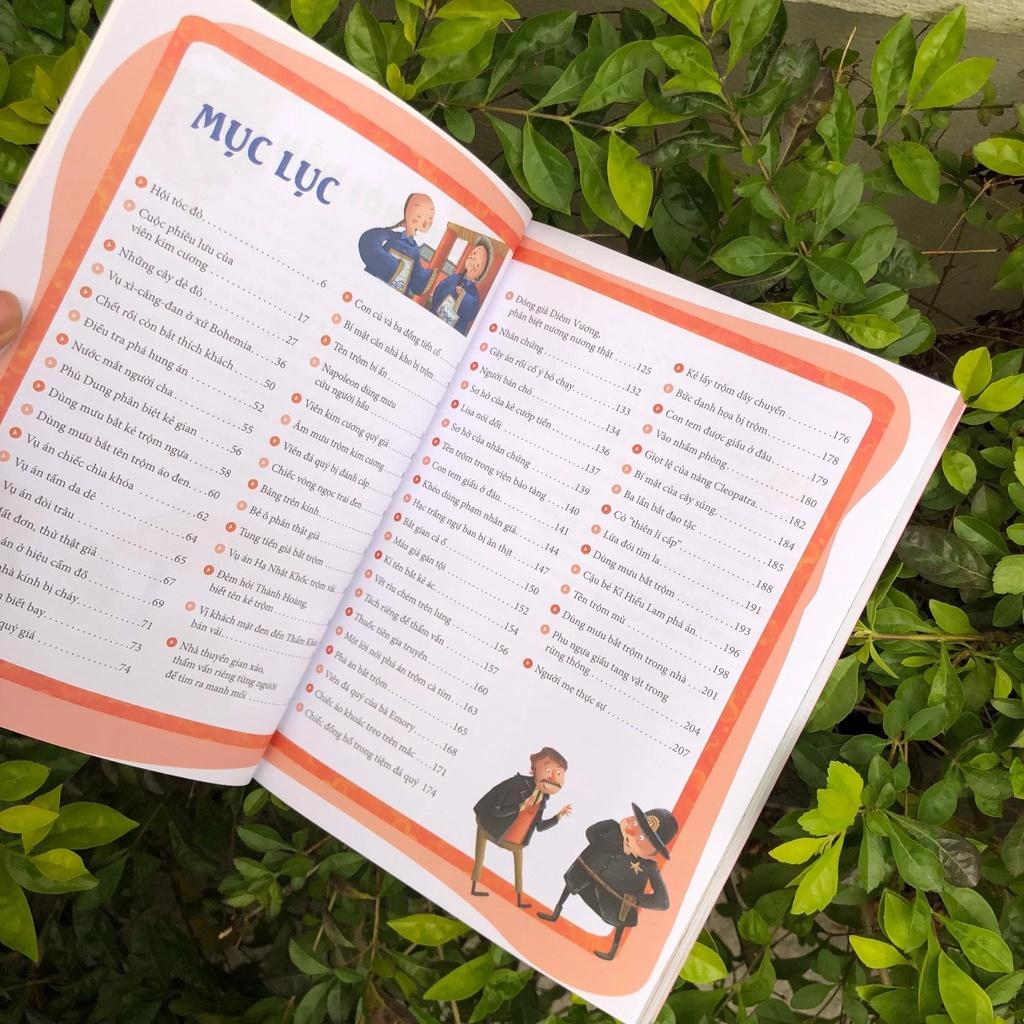 MỤC LỤC
Hội tóc đỏ..........6
Cuộc phiêu lưu của
viên kim cương..........17
Những cây dẻ đỏ..........27
Vụ xì-căng-đan ở xứ Bohemia....36
Chết rồi còn bắt thích khách..........50
Điều tra phá hung án..........52
Nước mắt người cha..........55
Phù Dung phân biệt kẻ gian..........56
Dùng mưu bắt kẻ trộm ngựa..........58
Dùng mưu bắt tên trộm áo đen....60
Vụ án chiếc chìa khóa..........62
Vụ án tấm da dê..........64
Vụ án đòi trâu..........65
đơn, thử thật giả..........67
án ở hiệu cầm đồ..........69
nhà kính bị cháy..........71
biết bay..........73
quý giá..........74
Con cú và ba đồng tiền cổ
Bí mật căn nhà kho bị trộm
Tên trộm bí ẩn..........
Napoleon dùng mưu
cứu người hầu..........
Viên kim cương quý giá
Âm mưu trộm kim cương
Viên đá quý bị đánh cắp
Chiếc vòng ngọc trai đen
Băng trên kính..........
Bẻ ô phán thật giả
Tung tiền giả bắt trộm
Vụ án Hạ Nhật Khốc trộm vải
Đêm hội Thành Hoàng,
biết tên kẻ trộm..........
Vị khách mặt đen đến Thẩm Khâu
bán vải..........
Nhà thuyền gian xảo,
thẩm vấn riêng từng người
để tìm ra manh mối..........
Đóng giả Diêm Vương,
phân biệt nương nương thật.......125
Nhân chứng..........132
Gây án rồi cố ý bỏ chạy..........133
Người bán chó..........134
Sơ hở của kẻ cướp tiền..........136
Lisa nói dối..........137
Sơ hở của nhân chứng..........139
Tên trộm trong viện bảo tàng.....140
Con tem giấu ở đâu..........141
Khéo dùng phạm nhân giả..........144
Hạc trắng ngụ bạn ăn thịt..........147
Bắt gian cả ổ..........150
Máu giả gán tội..........152
Kí tên bắt kẻ ác..........154
Vết chém trên lưng..........156
Tách riêng để thẩm vấn..........157
Thuốc tiên gia truyền..........160
Một lời nói phá án trộm cà tím....163
Phá án bắt trộm..........165
Viên đá quý của bà Emory..........168
Chiếc áo khoác treo trên mắc.....171
Chiếc đồng hồ trong tiệm đá quý 174
Kẻ lấy trộm dây chuyền..........176
Bức danh họa bị trộm..........178
Con tem được giấu ở đâu..........179
Vào nhầm phòng..........180
Giọt lệ của nàng Cleopatra..........182
Bí mật của cây súng..........184
Ba lần bắt đạo tặc..........185
Cỏ "thiên lí cấp"..........188
Lừa đòi tìm la..........191
Dùng mưu bắt trộm..........193
Cậu bé Kỉ Hiểu Lam phá án..........196
Tên trộm mù..........198
Dùng mưu bắt trộm trong nhà...201
Phu ngựa giấu tang vật trong
rừng thông..........204
Người mẹ thực sự..........207